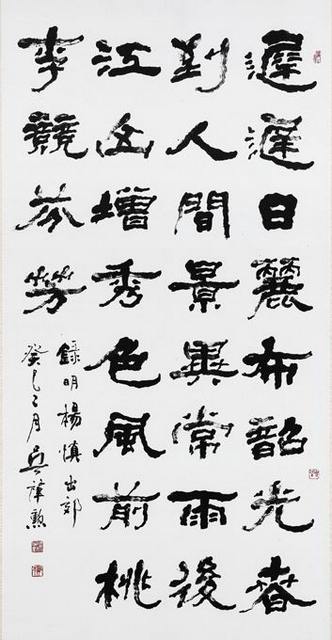 遲遲日麗布韶光春
到人間景異常雨後
江山增秀色風前桃
李競芬芳
錄明楊慎出郊
癸巳二月吳勳